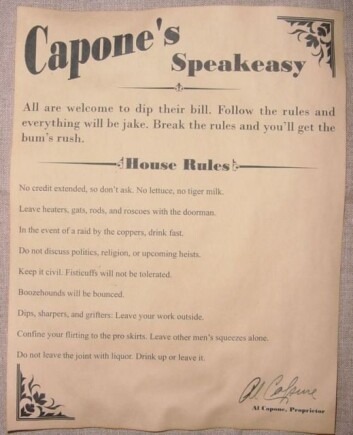 Capone's
Speakeasy
All are welcome to dip their bill. Follow the rules and
everything will be jake. Break the rules and you'll get the
bum's rush.
House Rules
No credit extended, so don't ask. No lettuce, no tiger milk.
Leave heaters, gats, rods, and roscoes with the doorman.
In the event of a raid by the coppers, drink fast.
Do not discuss politics, religion, or upcoming heists.
Keep it civil. Fisticuffs will not be tolerated.
Boozehounds will be bounced.
Dips, sharpers, and grifters: Leave your work outside.
Confine your flirting to the pro skirts. Leave other men's squeezes alone.
Do not leave the joint with liquor. Drink up or leave it.
Al Capone
Al Capone, Proprietor